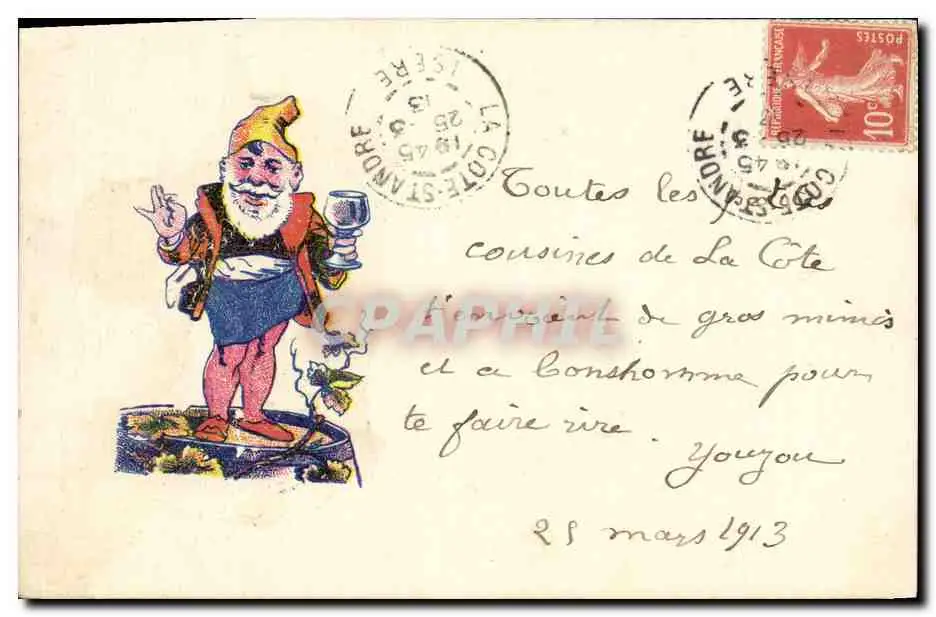 LA COTE-ST-ANDRE
18 45
25 3
13
ISÈRE
REPUBLIQUE FRANÇAISE
POSTES
10c
Toutes les
cousines de La Côte
t'envoient de gros mimis
et ce bonshomme pour
te faire rire.
Youyou
25 mars 1913
CPAPHIL